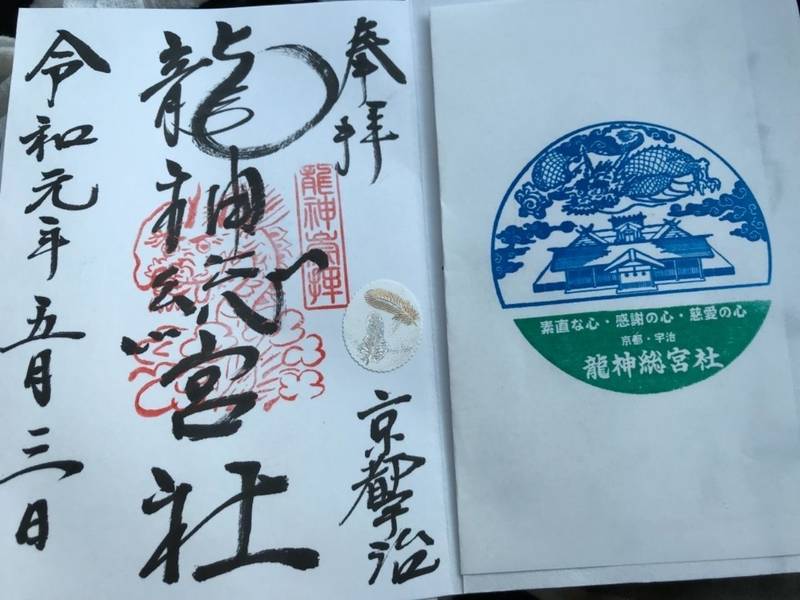 奉拝
京都宇治
龍神総宮社
令和元年五月三日
素直な心・感謝の心・慈愛の心
京都・宇治
龍神総宮社